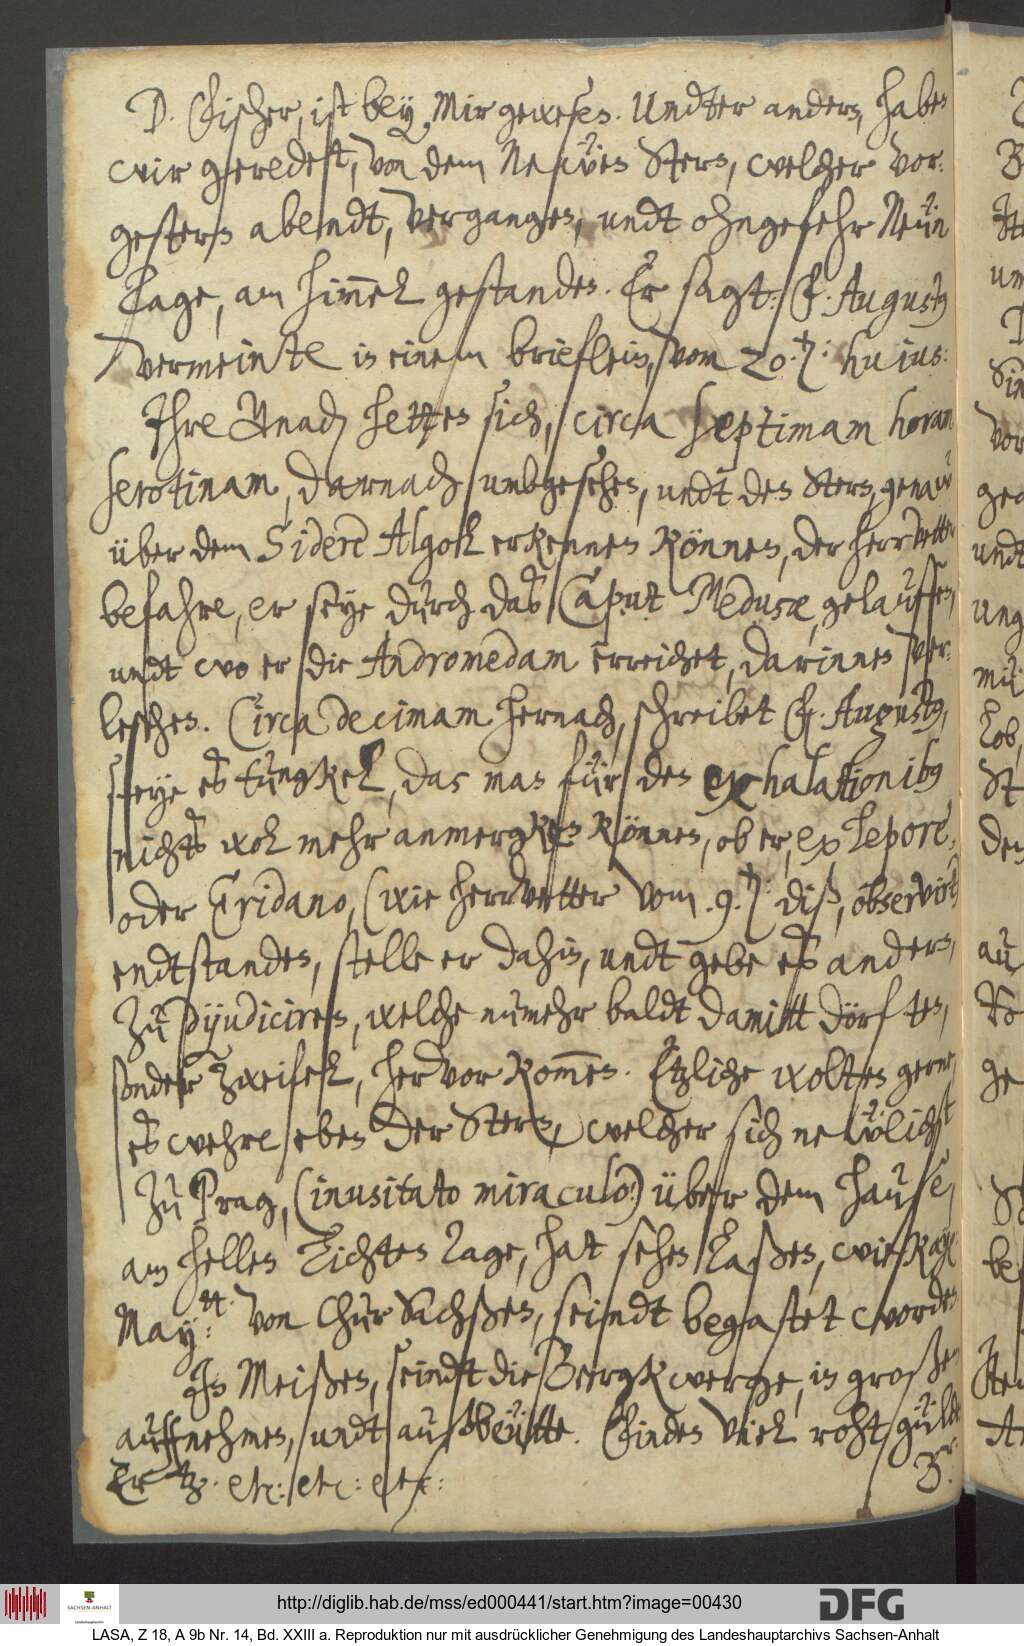 D. Fischer, ist bey Mir gewesen. Undter andern, haben
wir geredest, von dem Newen Stern, welcher vor:
gestern abendt, vergangen, undt ohngefehr Neün
Tage, am himmel gestanden. Er sagt: F. Augustus
vermeinte in einem briefflein, vom 20. huius:
Ihre Gnad hetten sich, circa septimam horam
serotinam, darnach umbgesehen, undt den Stern, genaw
über dem Sidere Algoll erkennen können, der herrvetter
befahre, er seye durch das Caput Medusæ, gelauffen,
undt wo er die Andromedam erreichet, darinnen ver:
leschen. Circa decimam hernach, schreibet F. Augustus,
seye es tungkel, das man für den exhalationibus
nichts wol mehr anmergken können, ob er, ex Lepore,
oder Eridano, (wie herrvetter vom 9. diß, observirt)
endtstanden, stelle er dahin, undt gebe es andern,
zu dijudiciren, welche numehr baldt damitt dörften,
sonder zweifel, hervor kommen. Etzliche wolten gerne,
es wehre eben der Stern, welcher sich newlichst
zu Prag, (inusitato miraculo) über dem hause,
am hellen lichten Tage, hat sehen laßen, wie Kayl
May:tt. von Chur Sachßen, seindt begastet worden
In Meißen, seindt die Bergkwerge, in großem
auffnehmen, undt ausbeütte. Finden viel roht gülden
Ertz. etc: etc: etc:
http://diglib.hab.de/mss/ed000441/start.htm?image=00430
DFG
SACHSEN-ANHALT
Landeshauptarchiv
LASA, Z 18, A 9b Nr. 14, Bd. XXIII a. Reproduktion nur mit ausdrücklicher Genehmigung des Landeshauptarchivs Sachsen-Anhalt